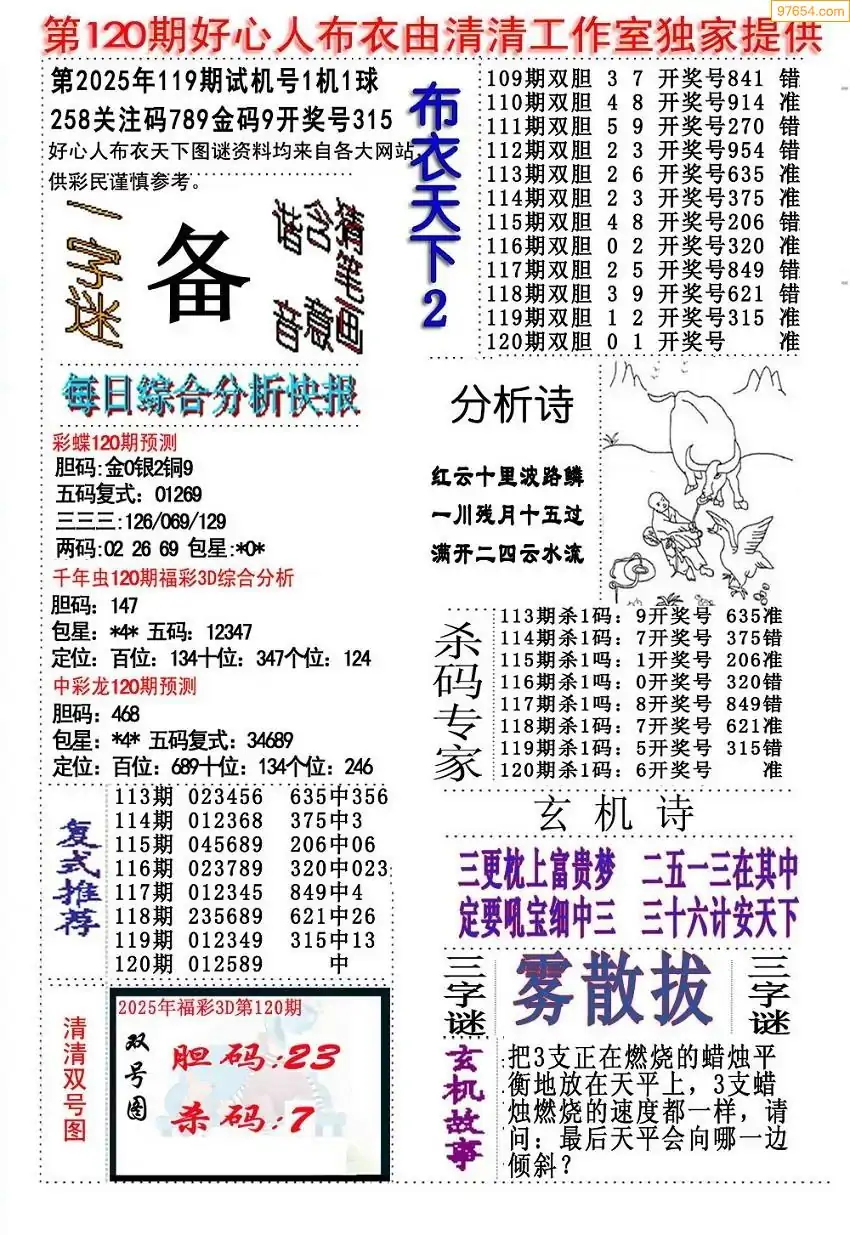 97654.com
第120期好心人布衣由清清工作室独家提供
第2025年119期试机号1机1球
258关注码789金码9开奖号315
好心人布衣天下图谜资料均来自各大网站,
供彩民谨慎参考。
一字迷
备
猜笔画
含意
谐音
布衣天下2
109期双胆 3 7 开奖号841 错
110期双胆 4 8 开奖号914 准
111期双胆 5 9 开奖号270 错
112期双胆 2 3 开奖号954 错
113期双胆 2 6 开奖号635 准
114期双胆 2 3 开奖号375 准
115期双胆 4 8 开奖号206 错
116期双胆 0 2 开奖号320 准
117期双胆 2 5 开奖号849 错
118期双胆 3 9 开奖号621 错
119期双胆 1 2 开奖号315 准
120期双胆 0 1 开奖号 准
每日综合分析快报
彩蝶120期预测
胆码:金0银2铜9
五码复式：01269
三三三:126/069/129
两码:02 26 69 包星:*0*
千年虫120期福彩3D综合分析
胆码：147
包星：*4* 五码：12347
定位：百位：134十位：347个位：124
中彩龙120期预测
胆码：468
包星：*4* 五码复式：34689
定位：百位：689十位：134个位：246
分析诗
红云十里波路鳞
一川残月十五过
满开二四云水流
杀码专家
113期杀1码：9开奖号 635准
114期杀1码：7开奖号 375错
115期杀1吗：1开奖号 206准
116期杀1吗：0开奖号 320错
117期杀1吗：8开奖号 849错
118期杀1码：7开奖号 621准
119期杀1码：5开奖号 315错
120期杀1码：6开奖号 准
复式推荐
113期 023456 635中356
114期 012368 375中3
115期 045689 206中06
116期 023789 320中023
117期 012345 849中4
118期 235689 621中26
119期 012349 315中13
120期 012589 中
玄机诗
三更枕上富贵梦 二五一三在其中
定要吼宝细中三 三十六计安天下
三字谜
雾散拔
三字谜
清清双号图
2025年福彩3D第120期
双号图
胆码:23
杀码:7
玄机故事
把3支正在燃烧的蜡烛平
衡地放在天平上，3支蜡
烛燃烧的速度都一样，请
问：最后天平会向哪一边
倾斜？